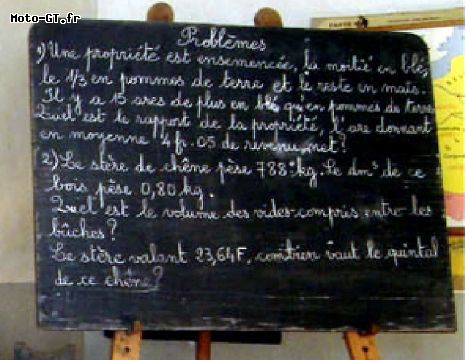 Moto-GT.fr
Problèmes
1) Une propriété est ensemencée, la moitié en blé,
le 1/3 en pommes de terre et le reste en maïs.
Il y a 15 ares de plus en blé qu'en pommes de terre
Quel est le rapport de la propriété, l'are donnant
en moyenne 4 fr. 05 de revenu net?
2) Le stère de chêne pèse 788 kg. Le dm³ de ce
bois pèse 0,80 kg.
Quel est le volume des vides compris entre les
bûches?
Le stère valant 23,64F, combien vaut le quintal
de ce chêne?
CARTE